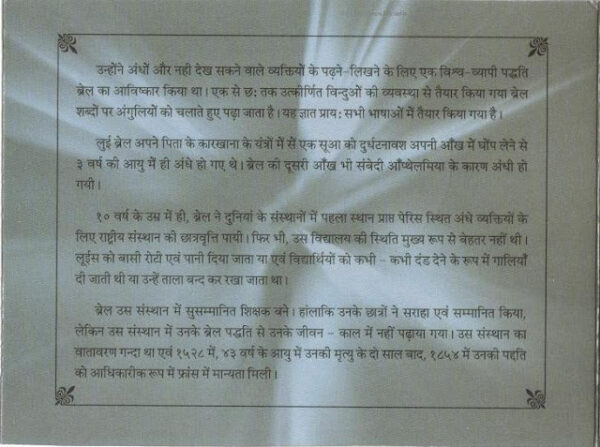 उन्होंने अंधों और नही देख सकने वाले व्यक्तियों के पढ़ने-लिखने के लिए एक विश्व-व्यापी पद्धति
ब्रेल का आविष्कार किया था। एक से छ: तक उत्कीर्णित विन्दुओं की व्यवस्था से तैयार किया गया ब्रेल
शब्दों पर अंगुलियों को चलाते हुए पढ़ा जाता है। यह ज्ञात प्राय: सभी भाषाओं में तैयार किया गया है।
लुई ब्रेल अपने पिता के कारखाना के यंत्रों में सें एक सूआ को दुर्घटनावश अपनी आँख में घोंप लेने से
३ वर्ष की आयु में ही अंधे हो गए थे। ब्रेल की दूसरी आँख भी संबेदी ऑप्थेलमिया के कारण अंधी हो
गयी।
१० वर्ष के उम्र में ही, ब्रेल ने दुनियां के संस्थानों में पहला स्थान प्राप्त पेरिस स्थित अंधे व्यक्तियों के
लिए राष्ट्रीय संस्थान की छात्रवृत्ति पायी। फिर भी, उस विद्यालय की स्थिति मुख्य रूप से बेहतर नहीं थी।
लूईस को बासी रोटी एवं पानी दिया जाता था एवं विद्यार्थियों को कभी - कभी दंड देने के रूप में गालियाँ
दी जाती थी या उन्हें ताला बन्द कर रखा जाता था।
ब्रेल उस संस्थान में सुसम्मानित शिक्षक बने। हांलाकि उनके छात्रों ने सराहा एवं सम्मानित किया,
लेकिन उस संस्थान में उनके ब्रेल पद्धति से उनके जीवन - काल में नहीं पढ़ाया गया। उस संस्थान का
वातावरण गन्दा था एवं १५२८ में, ४३ वर्ष के आयु में उनकी मृत्यु के दो साल बाद, १८५४ में उनकी पद्दति
को आधिकारीक रूप में फ्रांस में मान्यता मिली।